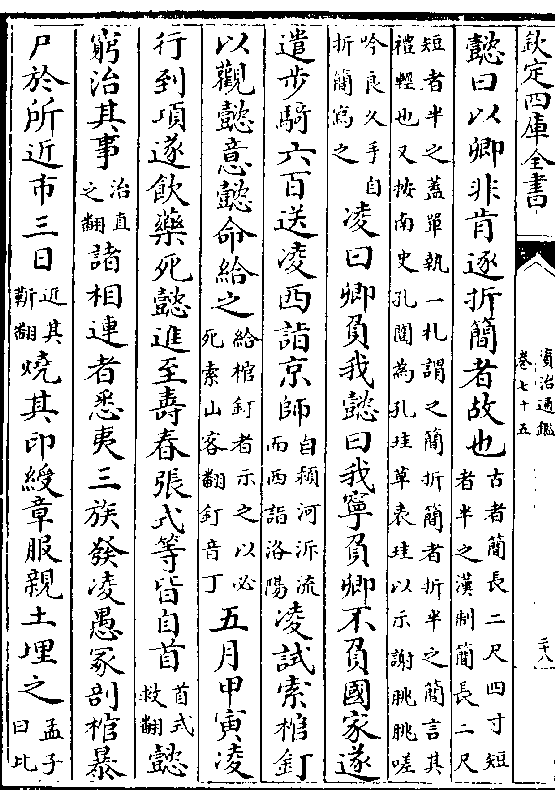 欽定四庫全書
資治通鑑
卷七十五
三八
懿曰以卿非肯逐折簡者故也古者簡長二尺四寸短
者半之漢制簡長二尺
短者半之蓋單執一札謂之簡折簡者折半之簡言其
禮輕也又按南史孔闓為孔珪草表珪以示謝朓朓嗟
吟良久手自
折簡寫之
凌曰卿負我懿曰我寧負卿不負國家遂
遣步騎六百送凌西詣京師自頴河泝流
而西詣洛陽凌試索棺釘
以觀懿意懿命給之給棺釘者示之以必
死索山客翻釘音丁五月甲寅凌
行到項遂飲藥死懿進至壽春張式等皆自首首式
救翻懿
窮治其事治直
之翻諸相連者悉夷三族發凌愚冢剖棺暴
尸於所近市三日近其
靳翻燒其印綬章服親土埋之孟子
曰比